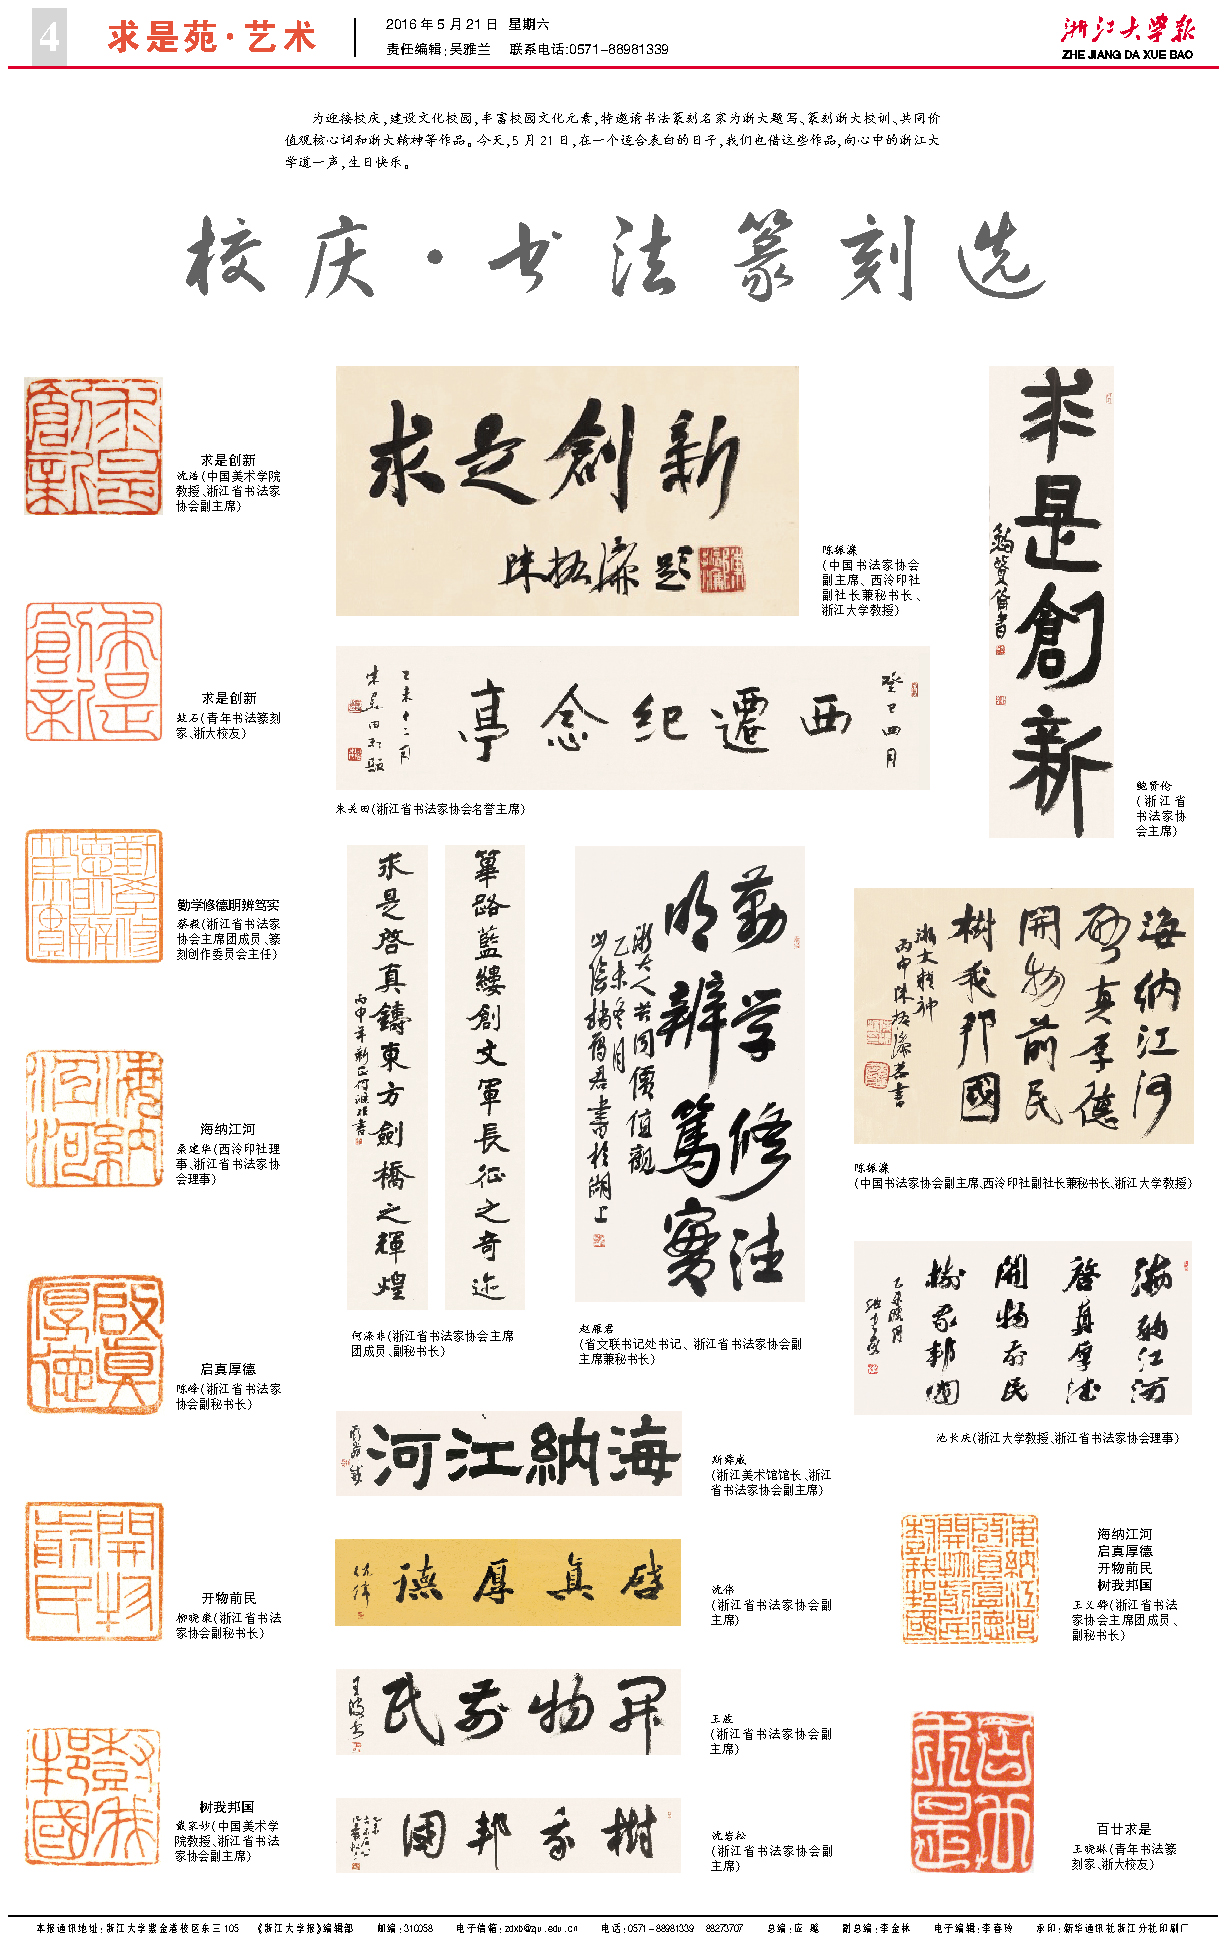 4
求是苑·艺术
2016年5月21日 星期六
责任编辑:吴雅兰 联系电话:0571-88981339
浙江大学报
ZHE JIANG DA XUE BAO
为迎接校庆,建设文化校园,丰富校园文化元素,特邀请书法篆刻名家为浙大题写、篆刻浙大校训、共同价
值观核心词和浙大精神等作品。今天,5月21日,在一个适合表白的日子,我们也借这些作品,向心中的浙江大
学道一声,生日快乐。
校庆·书法篆刻选
求是创新
沈浩(中国美术学院
教授、浙江省书法家
协会副主席)
求是创新
(青年书法篆刻
家、浙大校友)
勤学修德明辨笃实
蔡毅(浙江省书法家
协会主席团成员、篆
刻创作委员会主任)
海纳江河
桑建华(西泠印社理
事、浙江省书法家协
会理事)
启真厚德
陈峰(浙江省书法家
协会副秘书长)
开物前民
柳晓康(浙江省书法
家协会副秘书长)
树我邦国
戴家妙(中国美术学
院教授、浙江省书法
家协会副主席)
求是創新
陳振濂題
陈振濂
(中国书法家协会
副主席、西泠印社
副社长兼秘书长、
浙江大学教授)
求是創新
鲍賢倫書
鲍贤伦
(浙江省
书法家协
会主席)
癸巳四月
西遷紀念亭
乙未十二月
朱关田
朱关田(浙江省书法家协会名誉主席)
篳路藍縷創文軍長征之奇迹
求是啓真鑄東方劍橋之輝煌
丙申年新正何滌非書
何涤非(浙江省书法家协会主席
团成员、副秘书长)
勤学修德
明辨篤實
浙大人共同價值觀
乙未冬月
趙雁君書於湖上
赵雁君
(省文联书记处书记、浙江省书法家协会副
主席兼秘书长)
海纳江河
啓真厚德
開物前民
樹我邦國
浙大精神
丙申陳振濂並書
陈振濂
(中国书法家协会副主席、西泠印社副社长兼秘书长、浙江大学教授)
海納江河
啓真厚德
開物前民
樹我邦國
池长庆(浙江大学教授、浙江省书法家协会理事)
海納江河
斯舜威
(浙江美术馆馆长、浙江
省书法家协会副主席)
啓真厚德
沈伟
(浙江省书法家协会副
主席)
開物前民
王波
(浙江省书法家协会副
主席)
樹我邦國
沈岩松
(浙江省书法家协会副
主席)
海纳江河
启真厚德
开物前民
树我邦国
王义骅(浙江省书法
家协会主席团成员、
副秘书长)
百廿求是
王晓琳(青年书法篆
刻家、浙大校友)
本报通讯地址:浙江大学紫金港校区东三105 《浙江大学报》编辑部 邮编:310058 电子信箱:zdxb@zju.edu.cn 电话:0571-88981339 88273707 总编:应飚 副总编:李金林 电子编辑:李春玲 承印:新华通讯社浙江分社印刷厂